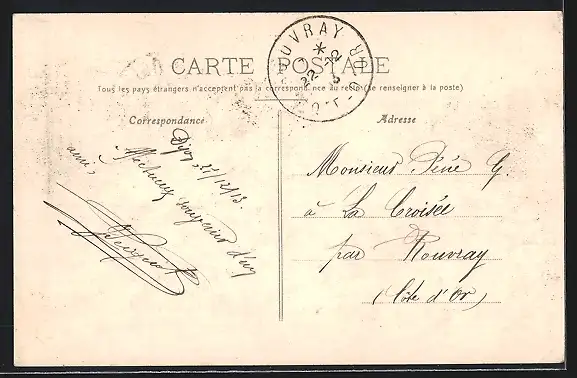 ROUVRAY
CÔTE-D'OR
22-12
CARTE POSTALE
Tous les pays étrangers n'acceptent pas la correspondance au recto (se renseigner à la poste)
Correspondance
Adresse
Dijon 21/12/13.
Affectueux souvenir d'un
ami
Monsieur Réné G.
à La Croisée
par Rouvray
(Côte d'Or)